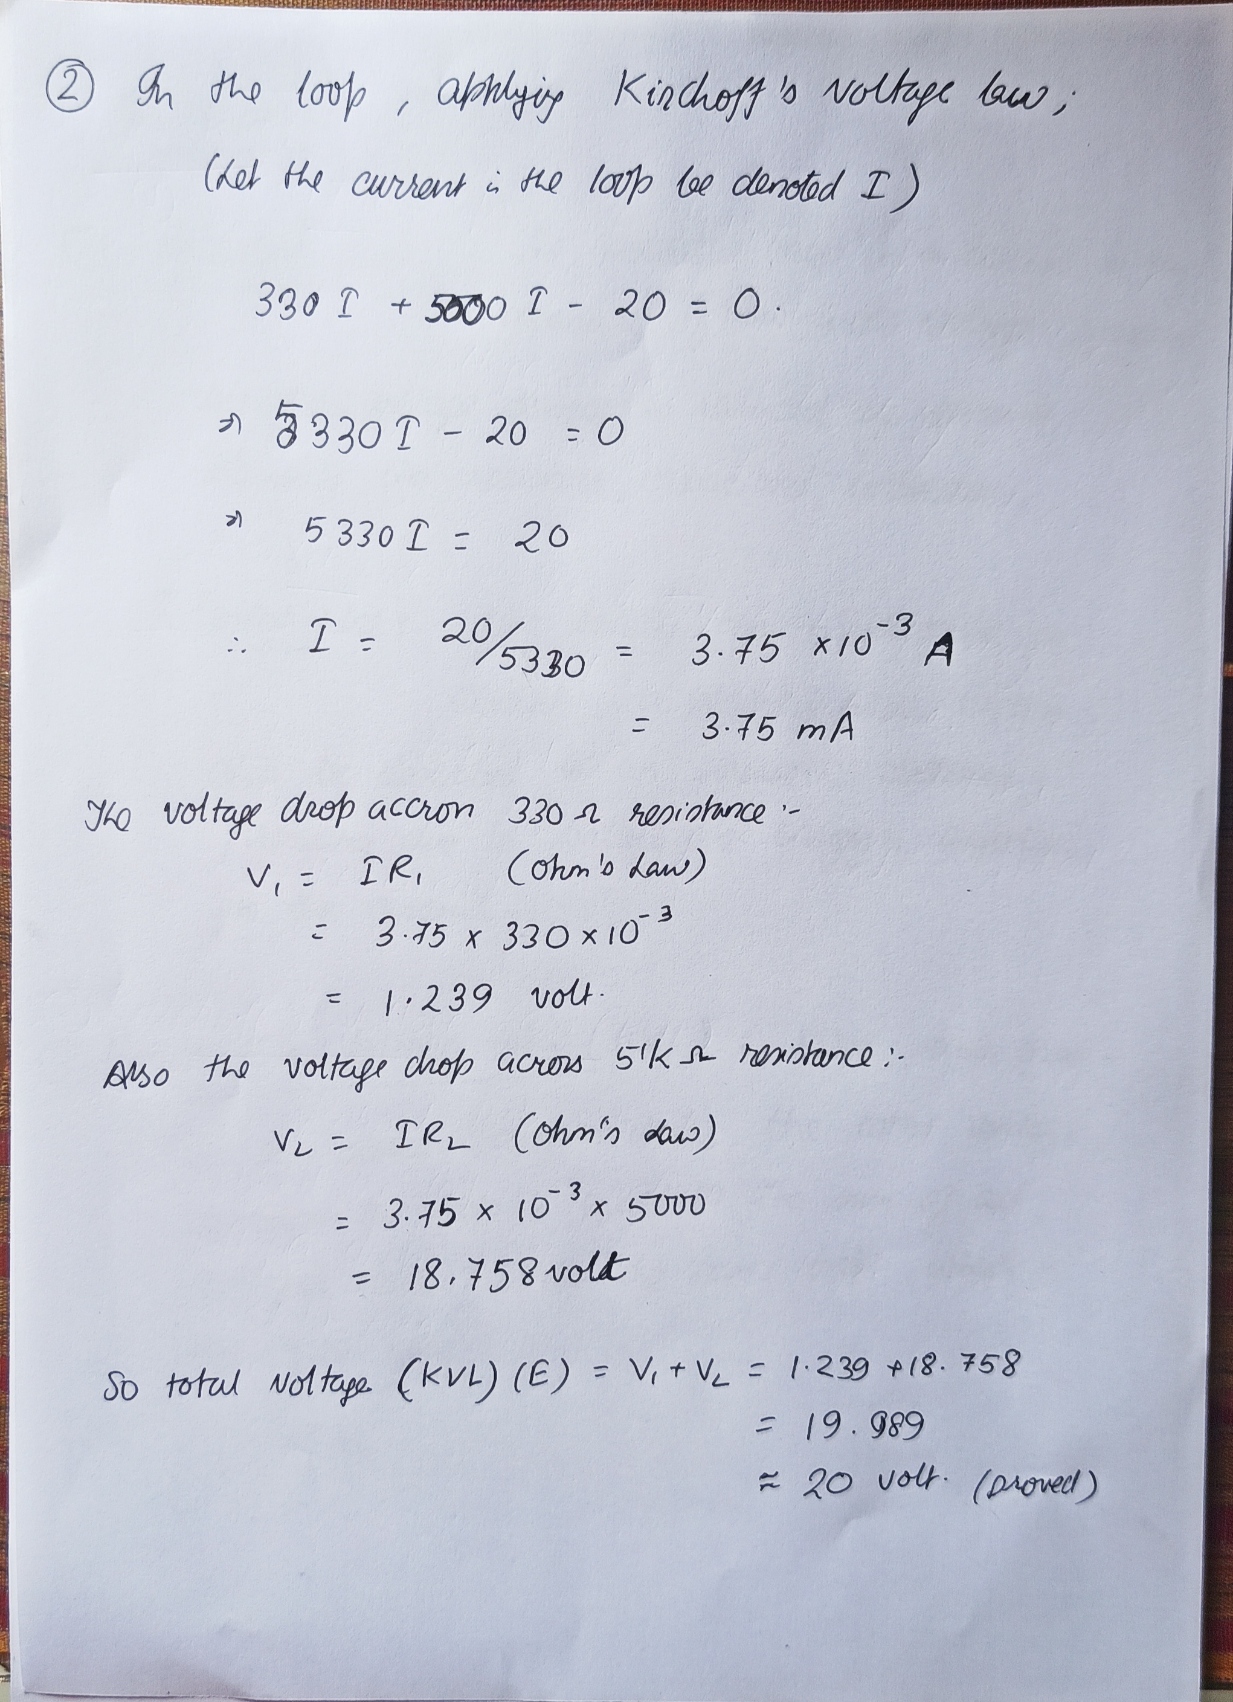 ② In the loop, applying Kirchoff's voltage law;
(Let the current in the loop be denoted I)
330 I + 5000 I - 20 = 0.
⇒ 5330 I - 20 = 0
⇒ 5330 I = 20
∴ I = 20/5330 = 3.75 × 10⁻³ A
= 3.75 mA
The voltage drop accross 330 Ω resistance :-
V₁ = IR₁ (Ohm's Law)
= 3.75 × 330 × 10⁻³
= 1.239 volt.
Also the voltage drop across 5'k Ω resistance :-
V₂ = IR₂ (Ohm's Law)
= 3.75 × 10⁻³ × 5000
= 18.758 volt
So total voltage (KVL) (E) = V₁ + V₂ = 1.239 + 18.758
= 19.989
≈ 20 volt. (proved)